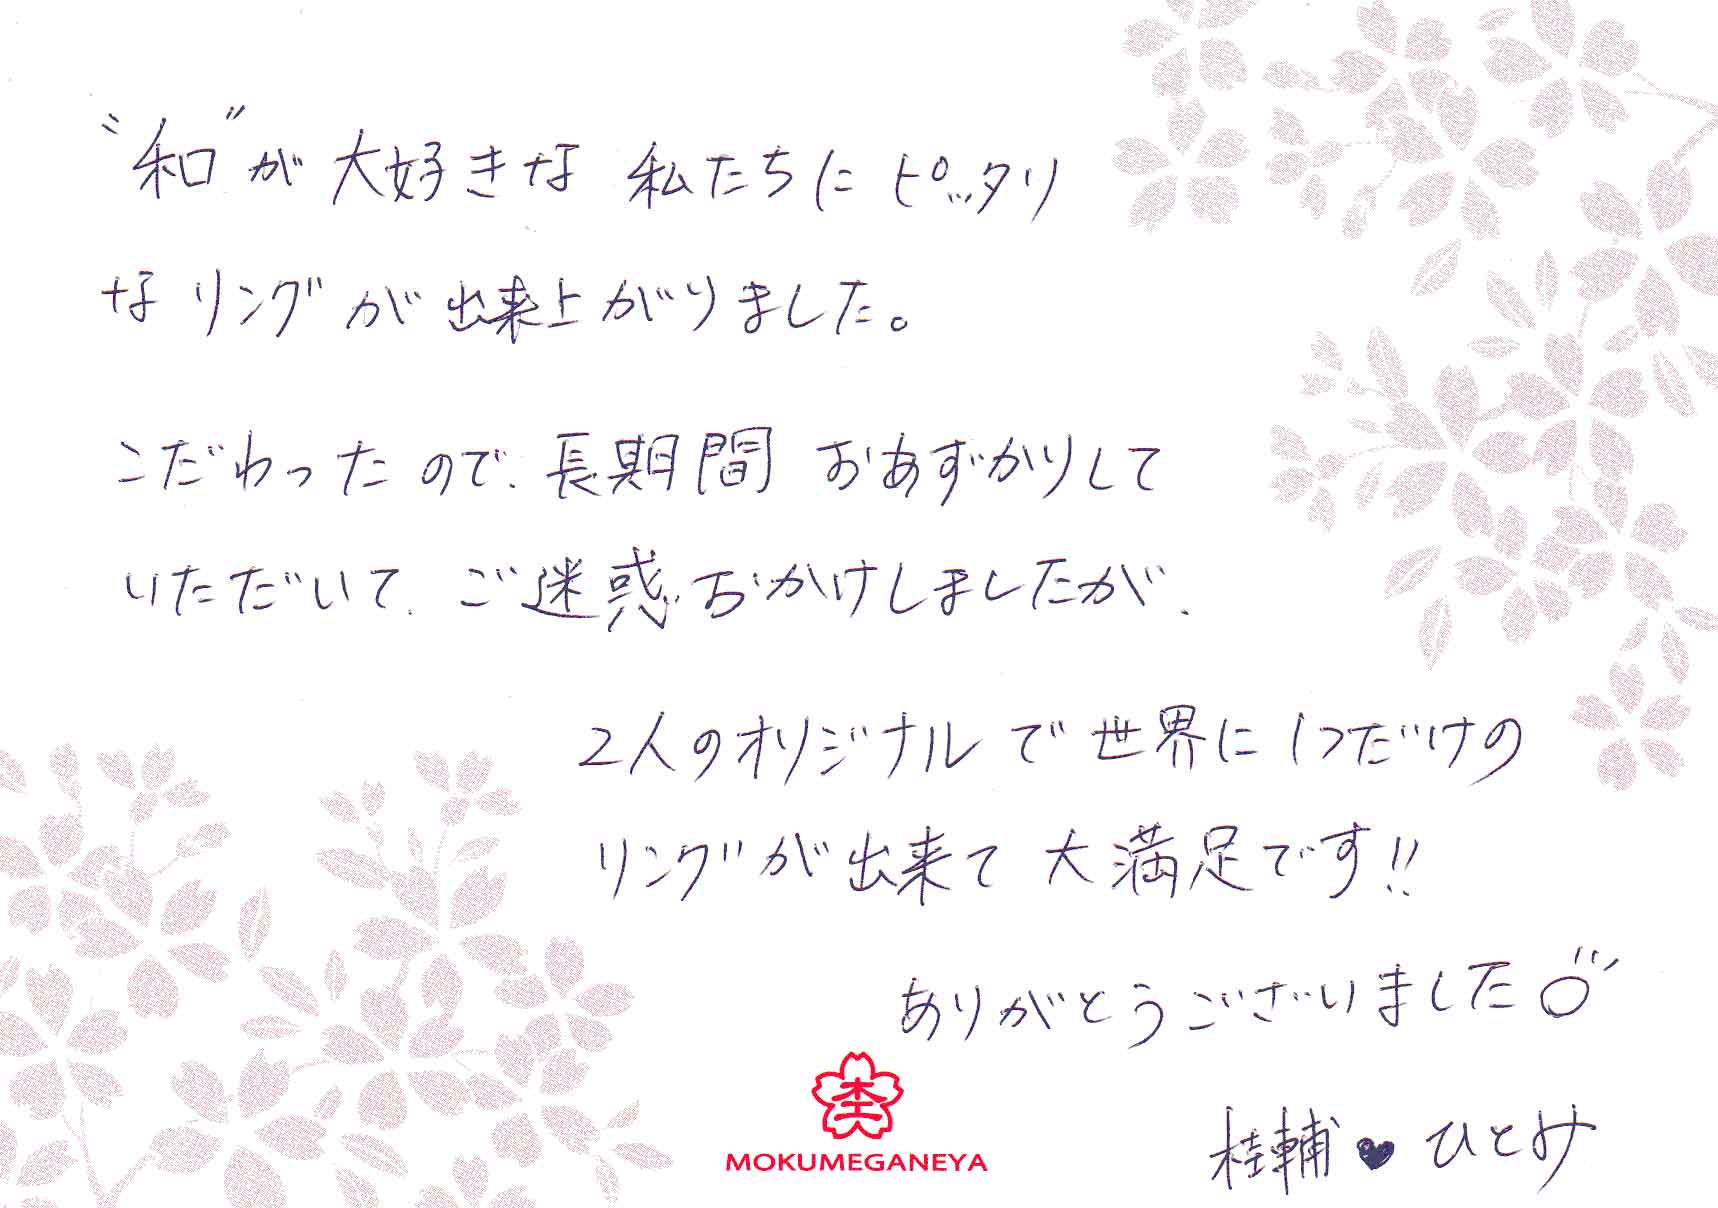 〝和〟が大好きな 私たちに ピッタリ
な リングが出来上がりました。
こだわったので、長期間 おあずかりして
いただいて、ご迷惑おかけしましたが、
2人のオリジナルで世界に1つだけの
リングが出来て 大満足です!!
ありがとうございました
桂輔♥ひとみ
杢
MOKUMEGANEYA